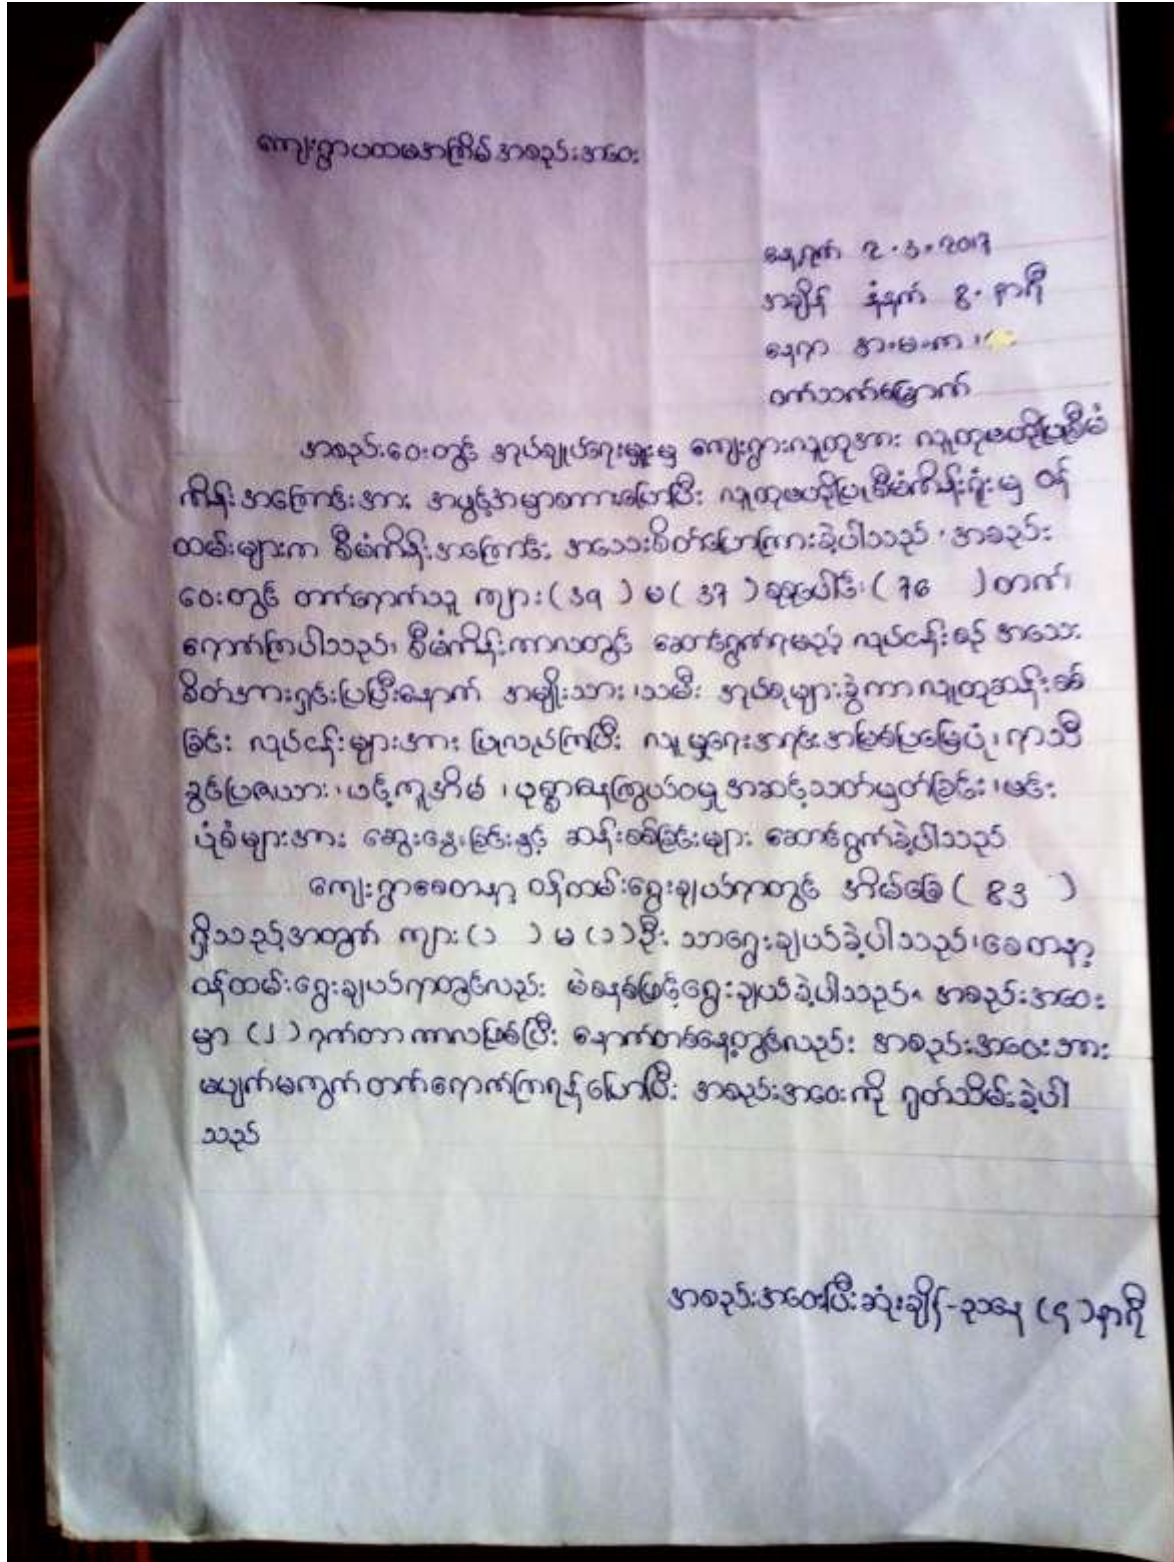 ကျေးရွာပထမအကြိမ် အစည်းအဝေး
နေ့ရက် 2.3.2017
အချိန် နံနက် 8. နာရီ
နေရာ အ.မ.က ၊
ဝက်သက်မြောက်
အစည်းဝေးတွင် အုပ်ချုပ်ရေးမှူးမှ ကျေးရွားလူထုအား လူထုဗဟိုပြုစီမံ
ကိန်းအကြောင်းအား အဖွင့်အမှာစကားပြောပြီး လူထုဗဟိုပြုစီမံကိန်းရုံးမှ ဝန်
ထမ်းများက စီမံကိန်းအကြောင်း အသေးစိတ်ပြောကြားခဲ့ပါသည်၊ အစည်း
ဝေးတွင် တက်ရောက်သူ ကျား(39 ) မ( 37 ) စုစုပေါင်း( 76 ) တက်
ရောက်ကြပါသည်၊ စီမံကိန်းကာလတွင် ဆောင်ရွက်ရမည့် လုပ်ငန်းစဉ် အသေး
စိတ်အားရှင်းပြပြီးနောက် အမျိုးသား ၊သမီး အုပ်စုများခွဲကာလူထုဆန်းစစ်
ခြင်း လုပ်ငန်းများအား ပြုလုပ်ကြပြီး လူမှုရေးအရင်းအမြစ်ပြမြေပုံ၊ ရာသီ
ခွင်ပြဇယား ၊ပင့်ကူအိမ် ၊ ပုစွာနေကြွယ်ဝမှု အဆင့်သတ်မှတ်ခြင်း ၊မင်း
ပုံစံများအား ဆွေးနွေးခြင်းနှင့် ဆန်းစစ်ခြင်းများ ဆောင်ရွက်ခဲ့ပါသည်
ကျေးရွာစေတနာ့ ဝန်ထမ်းရွေးချယ်ရာတွင် အိမ်ခြေ ( 83 )
ရှိသည့်အတွက် ကျား (၁ ) မ (၁)ဦး သာရွေးချယ်ခဲ့ပါသည်၊စေတနာ့
ဝန်ထမ်းရွေးချယ်ရာတွင်လည်း မဲစနစ်ဖြင့်ရွေးချယ်ခဲ့ပါသည်၊ အစည်းအဝေး
မှာ (၂) ရက်တာ ကာလဖြစ်ပြီး နောက်တစ်နေ့တွင်လည်း အစည်းအဝေးအား
မပျက်မကွက် တက်ရောက်ကြရန်ပြောပြီး အစည်းအဝေးကို ရုတ်သိမ်းခဲ့ပါ
သည်
အစည်းအဝေးပြီးဆုံးချိန်-ညနေ (၄)နာရီ